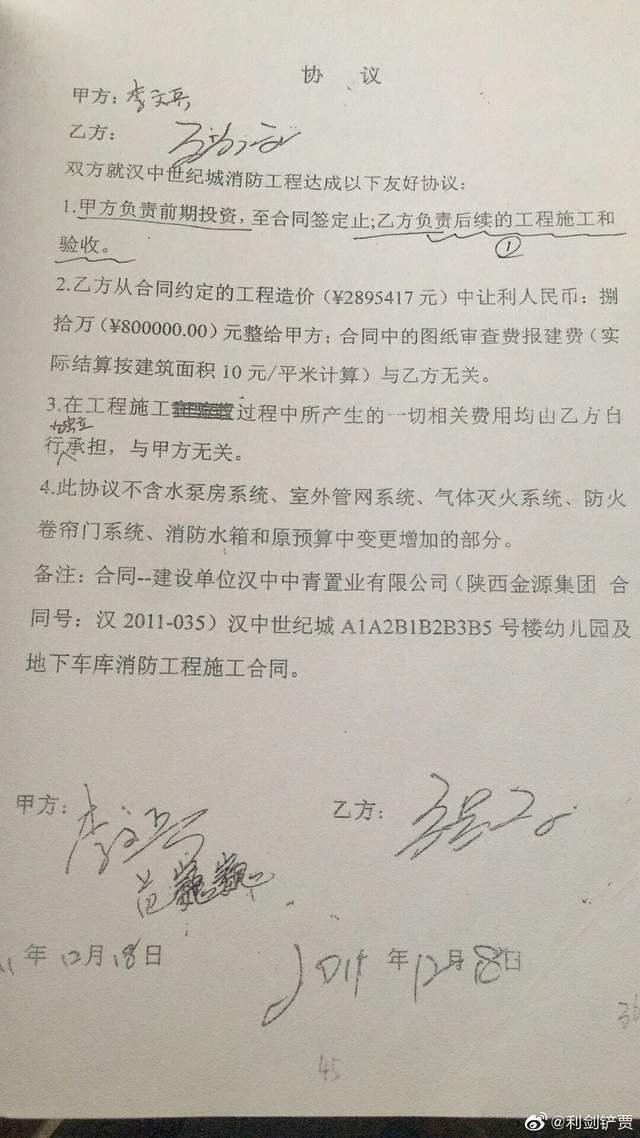 协 议
甲方：李文兵
乙方：
双方就汉中世纪城消防工程达成以下友好协议：
1.甲方负责前期投资，至合同签定止;乙方负责后续的工程施工和
①
验收。
2.乙方从合同约定的工程造价（¥2895417 元）中让利人民币：捌
拾万（¥800000.00）元整给甲方；合同中的图纸审查费报建费（实
际结算按建筑面积 10 元/平米计算）与乙方无关。
3.在工程施工过程中所产生的一切相关费用均由乙方自
行承担，与甲方无关。
4.此协议不含水泵房系统、室外管网系统、气体灭火系统、防火
卷帘门系统、消防水箱和原预算中变更增加的部分。
备注：合同--建设单位汉中中青置业有限公司（陕西金源集团 合
同号：汉 2011-035）汉中世纪城 A1A2B1B2B3B5 号楼幼儿园及
地下车库消防工程施工合同。
甲方：李文兵 乙方：
年 12月18日 2011 年 12月18日
45
@利剑铲贾